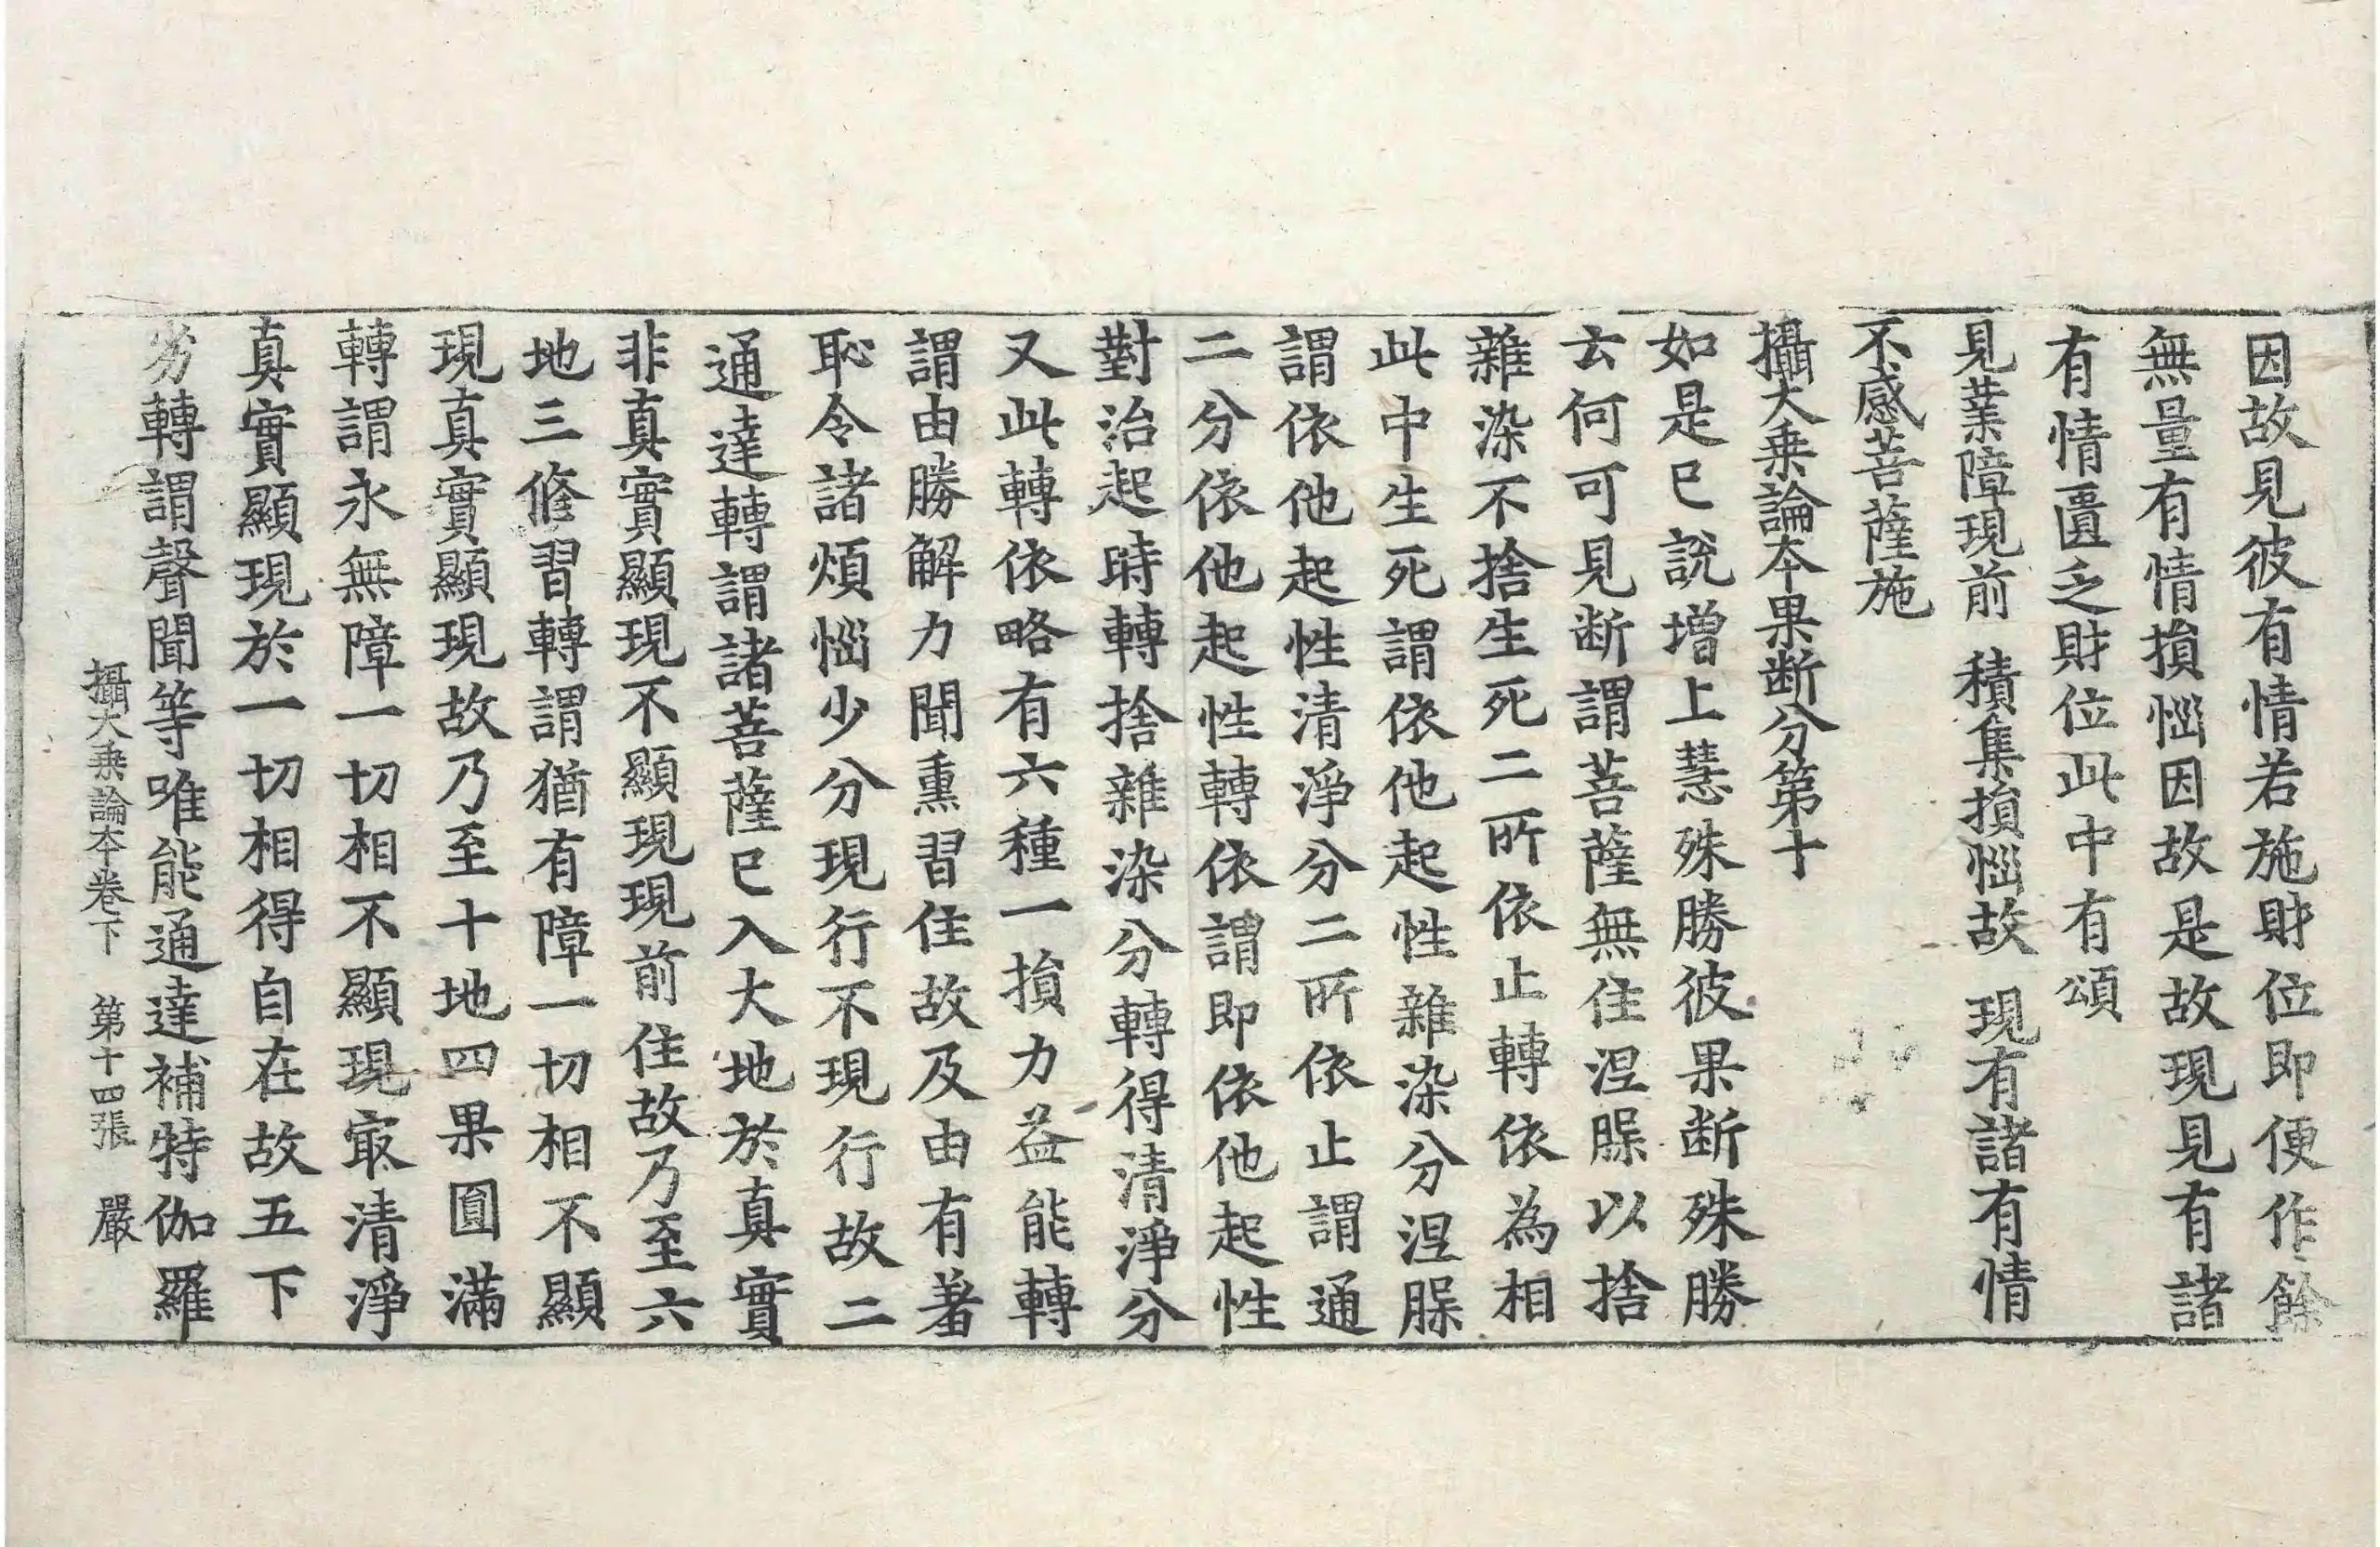 因故見彼有情若施財位即便作餘
無量有情損惱因故是故現見有諸
有情匱乏財位此中有頌
見業障現前　積集損惱故　現有諸有情
不感菩薩施
攝大乗論本果断分第十
如是已說增上慧殊勝彼果断殊勝
云何可見断謂菩薩無住涅槃以捨
雜染不捨生死二所依止轉依為相
此中生死謂依他起性雜染分涅槃
謂依他起性清淨分二所依止謂通
二分依他起性轉依謂即依他起性
對治起時轉捨雜染分轉得清淨分
又此轉依略有六種一損力益能轉
謂由勝解力聞熏習住故及由有著
恥令諸煩惱少分現行不現行故二
通達轉謂諸菩薩已入大地於真實
非真實顯現不顯現現前住故乃至六
地三修習轉謂猶有障一切相不顯
現真實顯現故乃至十地四果圓滿
轉謂永無障一切相不顯現冣清淨
真實顯現於一切相得自在故五下
劣轉謂聲聞等唯能通達補特伽羅
攝大乗論本卷下　第十四張　嚴